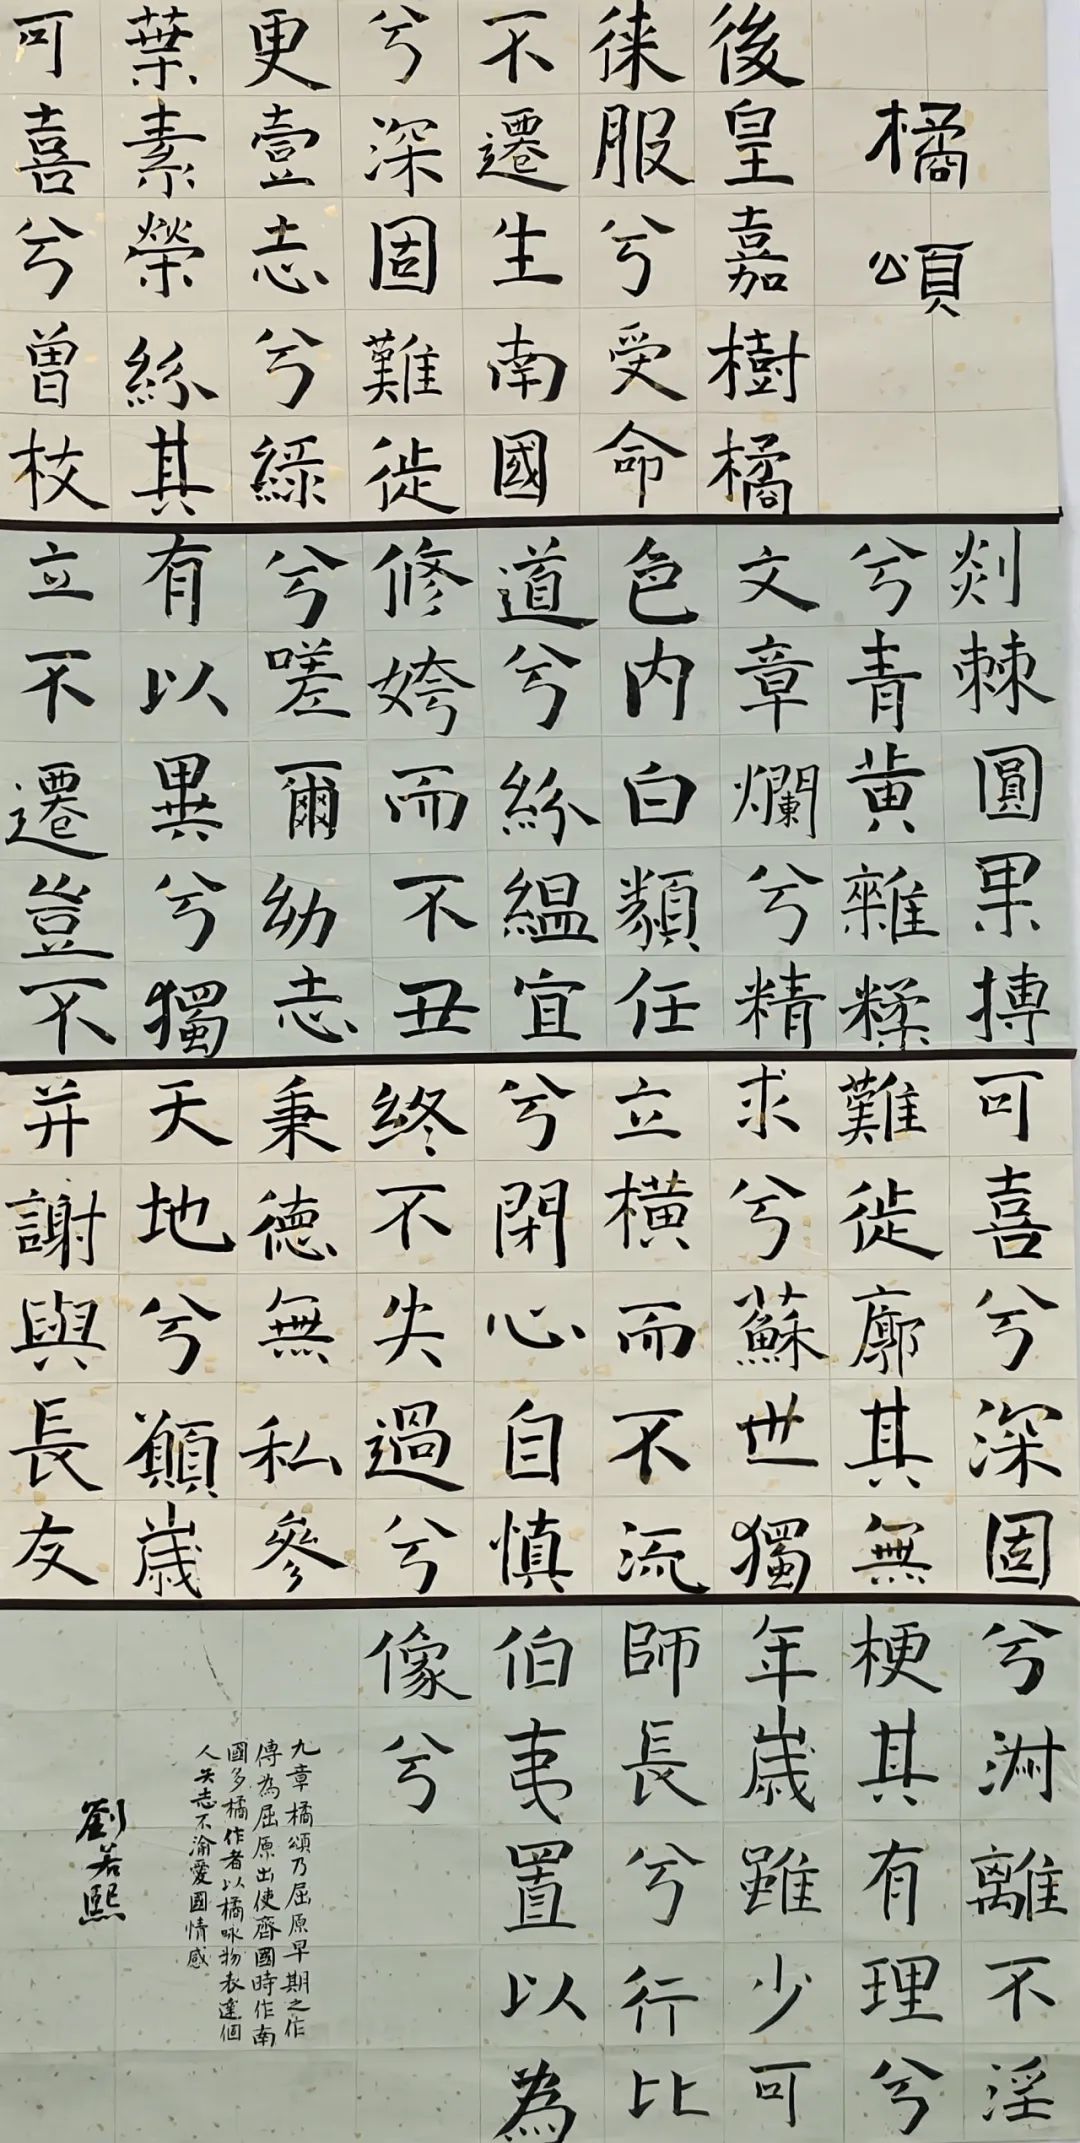 橘頌
後皇嘉樹橘
徠服兮受命
不遷生南國
兮深固難徙
更壹志兮綠
葉素榮紛其
可喜兮曾枝
剡棘圓果摶
兮青黄雜糅
文章爛兮精
色内白類任
道兮紛緼宜
修姱而不丑
兮嗟爾幼志
有以異兮獨
立不遷豈不
可喜兮深固
難徙廓其無
求兮蘇世獨
立橫而不流
兮閉心自慎
終不失過兮
秉德無私參
天地兮願歲
并謝與長友
兮淋離不淫
梗其有理兮
年歲雖少可
師長兮行比
伯夷置以為
像兮
九章橘頌乃屈原早期之作
傳為屈原出使齊國時作南
國多橘作者以橘咏物表達個
人矢志不渝愛國情感
劉若熙